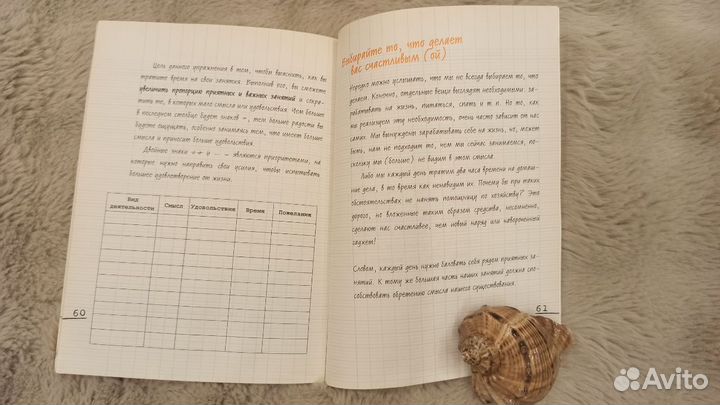 Цель данного упражнения в том, чтобы выяснить, как вы
тратите время на свои занятия. Выполнив его, вы сможете
увеличить пропорцию приятных и важных занятий и сокра-
тить те, в которых мало смысла или удовольствия. Чем больше
в последнем столбце будет знаков =, тем больше радости вы
будете ощущать, особенно занимаясь тем, что имеет больше
смысла и приносит больше удовольствия.
Двойные знаки ++ и -- являются приоритетами, на
которые нужно направить свои усилия, чтобы испытывать
большее удовлетворение от жизни.
Вид
деятельности Смысл Удовольствие Время Пожелания
60
Выбирайте то, что делает
вас счастливым (ой)
Нередко можно услышать, что мы не всегда выбираем то, что
делаем. Конечно, отдельные вещи выглядят необходимыми: за-
рабатывать на жизнь, питаться, спать и т. п. Но то, как
мы реализуем эту необходимость, очень часто зависит от нас
самих. Мы вынуждены зарабатывать себе на жизнь, но, может
быть, нам не подходит то, чем мы сейчас занимаемся, по-
скольку мы (больше) не видим в этом смысла.
Либо мы каждый день тратим два часа времени на домаш-
ние дела, в то время как ненавидим их. Почему бы при таких
обстоятельствах не нанять помощницу по хозяйству? Это
дорого, но вложенные таким образом средства, несомненно,
сделают нас счастливее, чем новый наряд или навороченный
гаджет!
Словом, каждый день нужно баловать себя рядом приятных за-
нятий. К тому же большая часть наших занятий должна спо-
собствовать обретению смысла нашего существования.
61
Avito